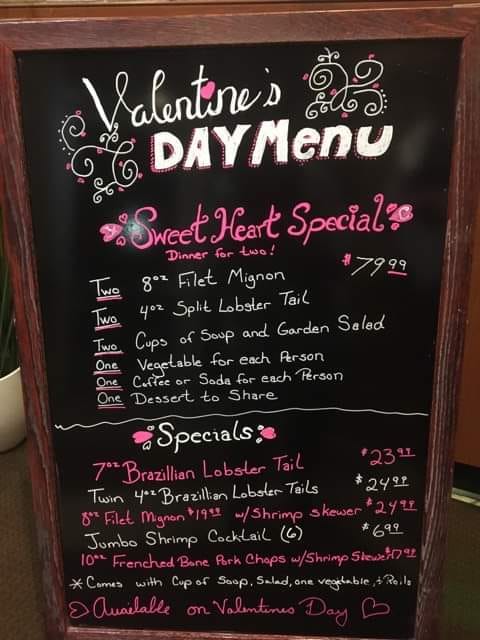 Valentine's
DAY Menu
Sweet Heart Special
Dinner for two!
$79.99
Two 8oz Filet Mignon
Two 4oz Split Lobster Tail
Two Cups of Soup and Garden Salad
One Vegetable for each Person
One Coffee or Soda for each Person
One Dessert to Share
Specials:
7oz Brazillian Lobster Tail $23.99
Twin 4oz Brazillian Lobster Tails $24.99
8oz Filet Mignon $19.99 w/Shrimp skewer $24.99
Jumbo Shrimp Cocktail (6) $6.99
10oz Frenched Bone Pork Chops w/Shrimp Skewer $17.99
*Comes with Cup of Soup, Salad, one vegetable, + Rolls
Available on Valentines Day